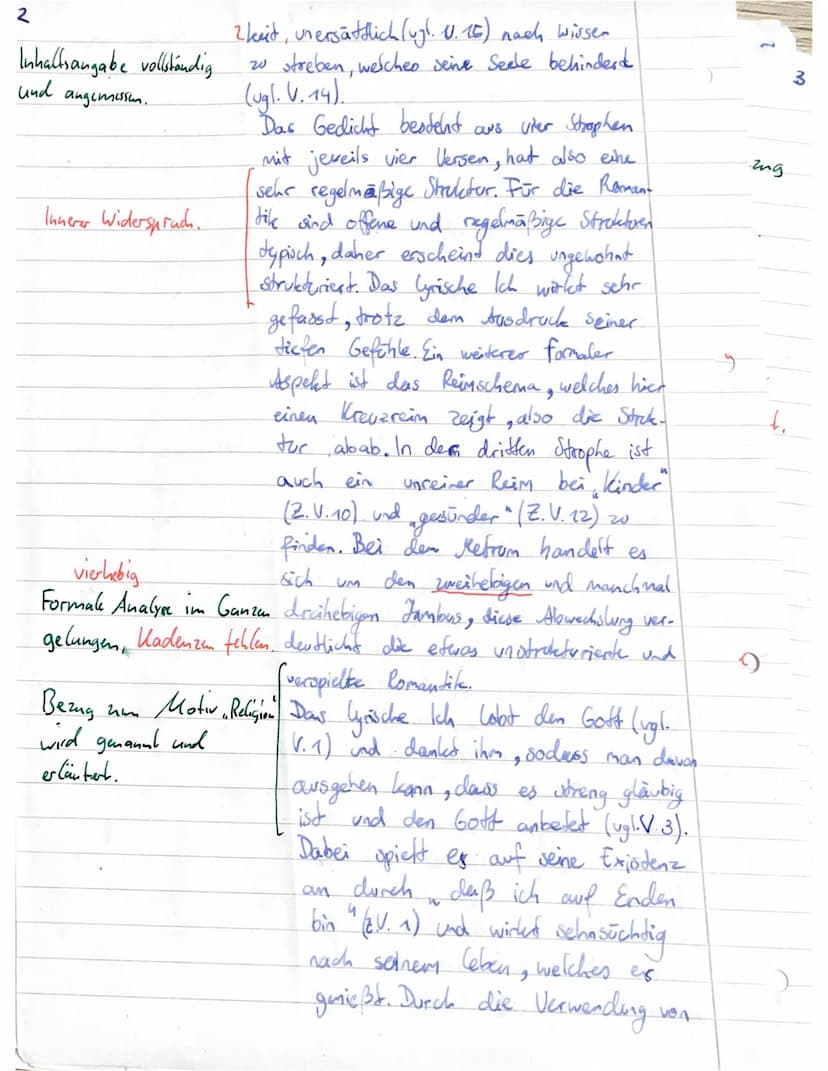 2
2 keit, unersättlich (vgl. V. 15) nach Wissen
Inhaltsangabe vollständig
und angemessen.
zu streben, welches seine Seele behindert
(vgl. V. 14).
Das Gedicht besteht aus vier Strophen
mit jeweils vier Versen, hat also eine
sehr regelmäßige Struktur. Für die Roman-
Innerer Widerspruch.
tik sind offene und regelmäßige Strukturen
typisch, daher erscheint dies ungewohnt
strukturiert. Das lyrische Ich wirkt sehr
gefasst, trotz dem Ausdruck seiner
tiefen Gefühle. Ein weiterer formaler
Aspekt ist das Reimschema, welches hier
einen Kreuzreim zeigt, also die Struk-
tur abab. In der dritten Strophe ist
auch ein unreiner Reim bei „Kinder"
(Z. V. 10) und „gesünder" (Z. V. 12) zu
finden. Bei dem Metrum handelt es
vierhebig
sich um den zweihebigen und manchmal
Formale Analyse im Ganzen
gelungen, Kadenzen fehlen.
dreihebigen Jambus, diese Abwechslung ver-
deutlicht die etwas unstrukturierte und
verspielte Romantik.
Bezug zum Motiv „Religion"
wird genannt und
erläutert.
Das lyrische Ich lobt den Gott (vgl.
V. 1) und dankt ihm, sodass man davon
ausgehen kann, dass es streng gläubig
ist und den Gott anbetet (vgl. V. 3).
Dabei spielt es auf seine Existenz
an durch „daß ich auf Erden
bin" (Z. V. 1) und wirkt sehnsüchtig
nach seinem Leben, welches es
genießt. Durch die Verwendung von
3
zug
t.